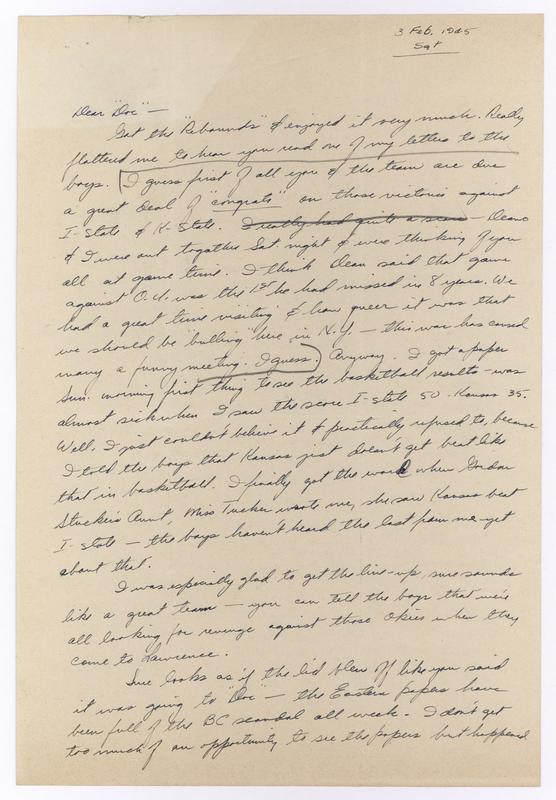 3 Feb. 1945
Sat
Dear "Doc" —
Got the "Rebounds" & enjoyed it very much. Really
flattered me to hear you read one of my letters to the
boys. I guess first of all you & the team are due
a great deal of "congrats" on those victories against
I-State & K-State. I really had quite a scare — Deano
& I were out together Sat. night & were thinking of you
all at game time. I think Dean said that game
against O.U. was the 1st he had missed in 8 years. We
had a great time visiting & how queer it was that
we should be "bulling" here in N.Y. — this war has caused
many a funny meeting. I guess. Anyway. I got a paper
Sun. morning first thing to see the basketball results - was
almost sick when I saw the score I-State 50 - Kansas 35.
Well, I just couldn't believe it & practically refused to, because
I told the boys that Kansas just doesn't get beat like
that in basketball. I finally got the word when Gordon
Stucker's Aunt, Miss Tucker wrote me, she saw Kansas beat
I-State — the boys haven't heard the last from me yet
about that.
I was especially glad to get the line-up, sure sounds
like a great team — you can tell the boys that we're
all looking for revenge against those Okies when they
come to Lawrence.
Sure looks as if the lid blew off like you said
it was going to "Doc" — the Eastern papers have
been full of the BC scandal all week. I don't get
too much of an opportunity to see the papers but happened